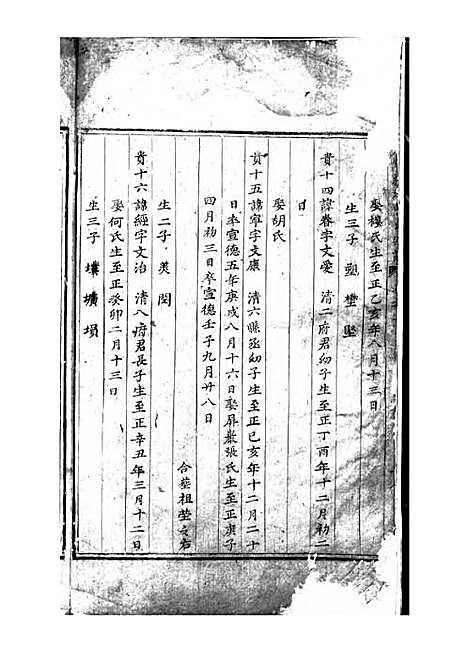 娶穆氏生至正乙亥年八月十三日
生三子 塑 壄 堅
貴十四諱眷字文愛 清二府君幼子生至正丁酉年十二月初二
日
娶胡氏
貴十五諱寧字文康 清六縣丞幼子生至正己亥年十二月二十
日卒宣德五年庚戌八月十六日娶屏巖張氏生至正庚子
四月初三日卒宣德壬子九月廿八日
合塟祖塋之右
生二子 美 閏
貴十六諱經字文治 清八府君長子生至正辛丑年三月十二日
娶何氏生至正癸卯二月十三日
生三子 壎 壙 塤